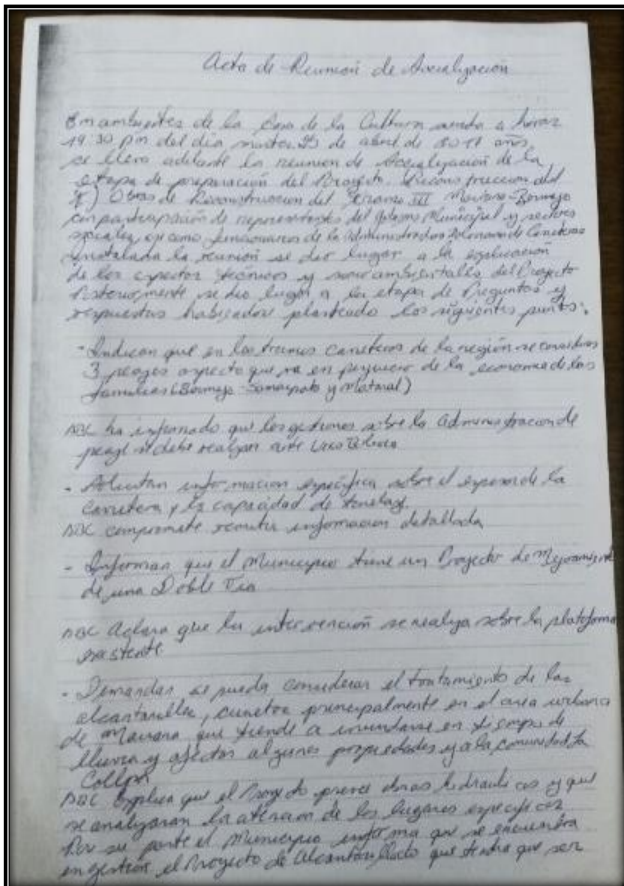 Acta de Reunión de Socialización
En ambientes de la Casa de la Cultura siendo a horas
19:30 pm del dia martes 25 de abril de 2017 años
se llevo adelante la reunion de Socialización de la
etapa de preparación del Proyecto Reconstruccion del
Obras de Reconstruccion del Tramo III Mairana-Bermejo
con participación de representantes del Gobierno Municipal y sectores
sociales, asi como funcionarios de la Administradora Boliviana de Carreteras
Instalada la reunión se dio lugar a la explicación
de los aspectos técnicos y socio ambientales del Proyecto
Posteriormente se dio lugar a la etapa de Preguntas y
respuestas habiendose planteado los siguientes puntos:
- Indican que en los tramos carreteros de la región se consideran
3 peajes aspecto que va en perjuicio de la economia de las
familias (Bermejo-Samaipata y Mataral)
ABC ha informado que las gestiones sobre la administracion de
peaje se debe realizar ante Vias Bolivia
- Solicitan informacion específica sobre el espesor de la
Carretera y la capacidad de tonelaje
ABC compromete remitir informacion detallada
- Informan que el Municipio tiene un Proyecto de Mejoramiento
de una Doble Via
ABC Aclara que la intervención se realiza sobre la plataforma
existente
- Demandan se pueda considerar el tratamiento de las
alcantarillas, cunetas principalmente en el area urbana
de Mairana que tiende a inundarse en tiempo de
lluvia y afectar algunas propiedades y a la comunidad La
Collpa
ABC explica que el Proyecto preve obras hidraulicas y que
se analizaran la atencion de los lugares especificos
Por su parte el Municipio informa que se encuentra
en gestión el Proyecto de Alcantarillado que tendra que ser